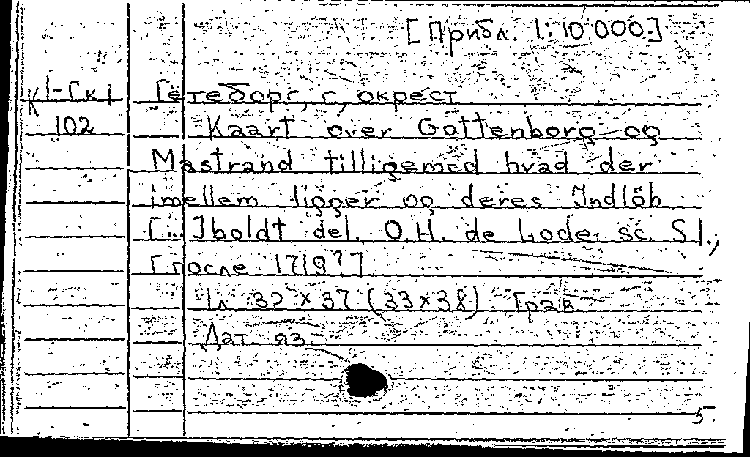 [Прибл. 1:10 000.]
К 1-Ск 1 Гётеборг, г, окрест
102 Kaart over Gottenborg og
Mastrand tilligemed hvad der
imellem ligger og deres Indlöb
[...]boldt del. O.H. de Lode sc. S.l.,
[после 1719?]
1 л. 32 × 37 (33 × 38). Грав.
Дат. яз.
5